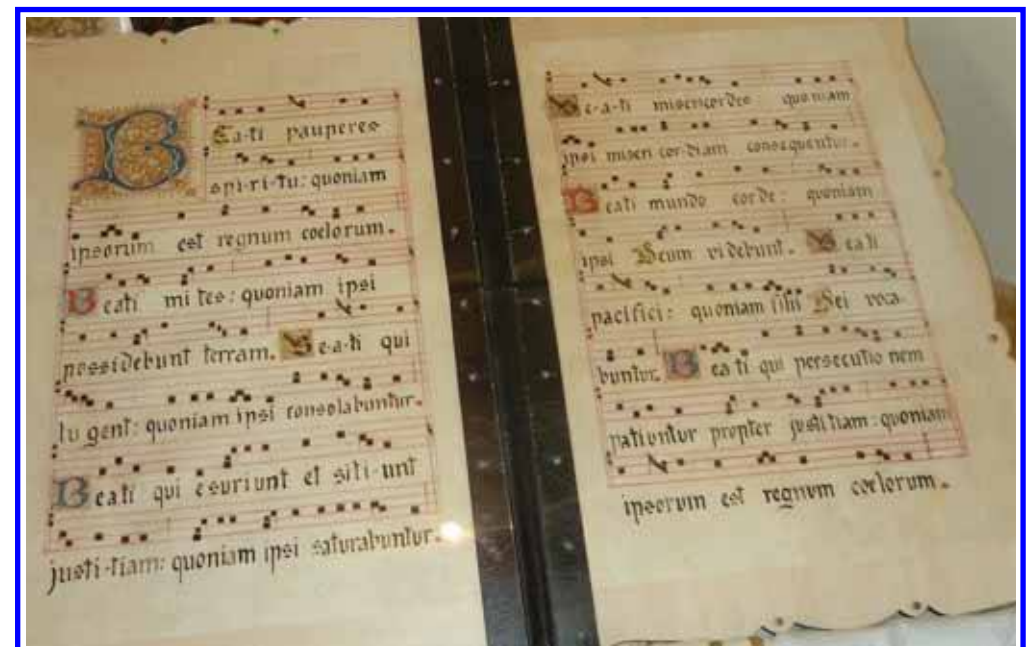 Be-a-ti pauperes
spi-ri-tu: quoniam
ipsorum est regnum coelorum.
Beati mi tes: quoniam ipsi
possidebunt terram. Be-a-ti qui
lu gent: quoniam ipsi consolabuntur.
Beati qui esuriunt et siti-unt
justi-tiam: quoniam ipsi saturabuntur.
Be-a-ti misericordes quoniam
ipsi miseri cor-diam consequentur.
Beati mundo corde: quoniam
ipsi Deum videbunt. Beati
pacifici: quoniam filii Dei voca-
buntur. Bea ti qui persecutio nem
patiuntur propter justi tiam: quoniam
ipsorum est regnum coelorum.